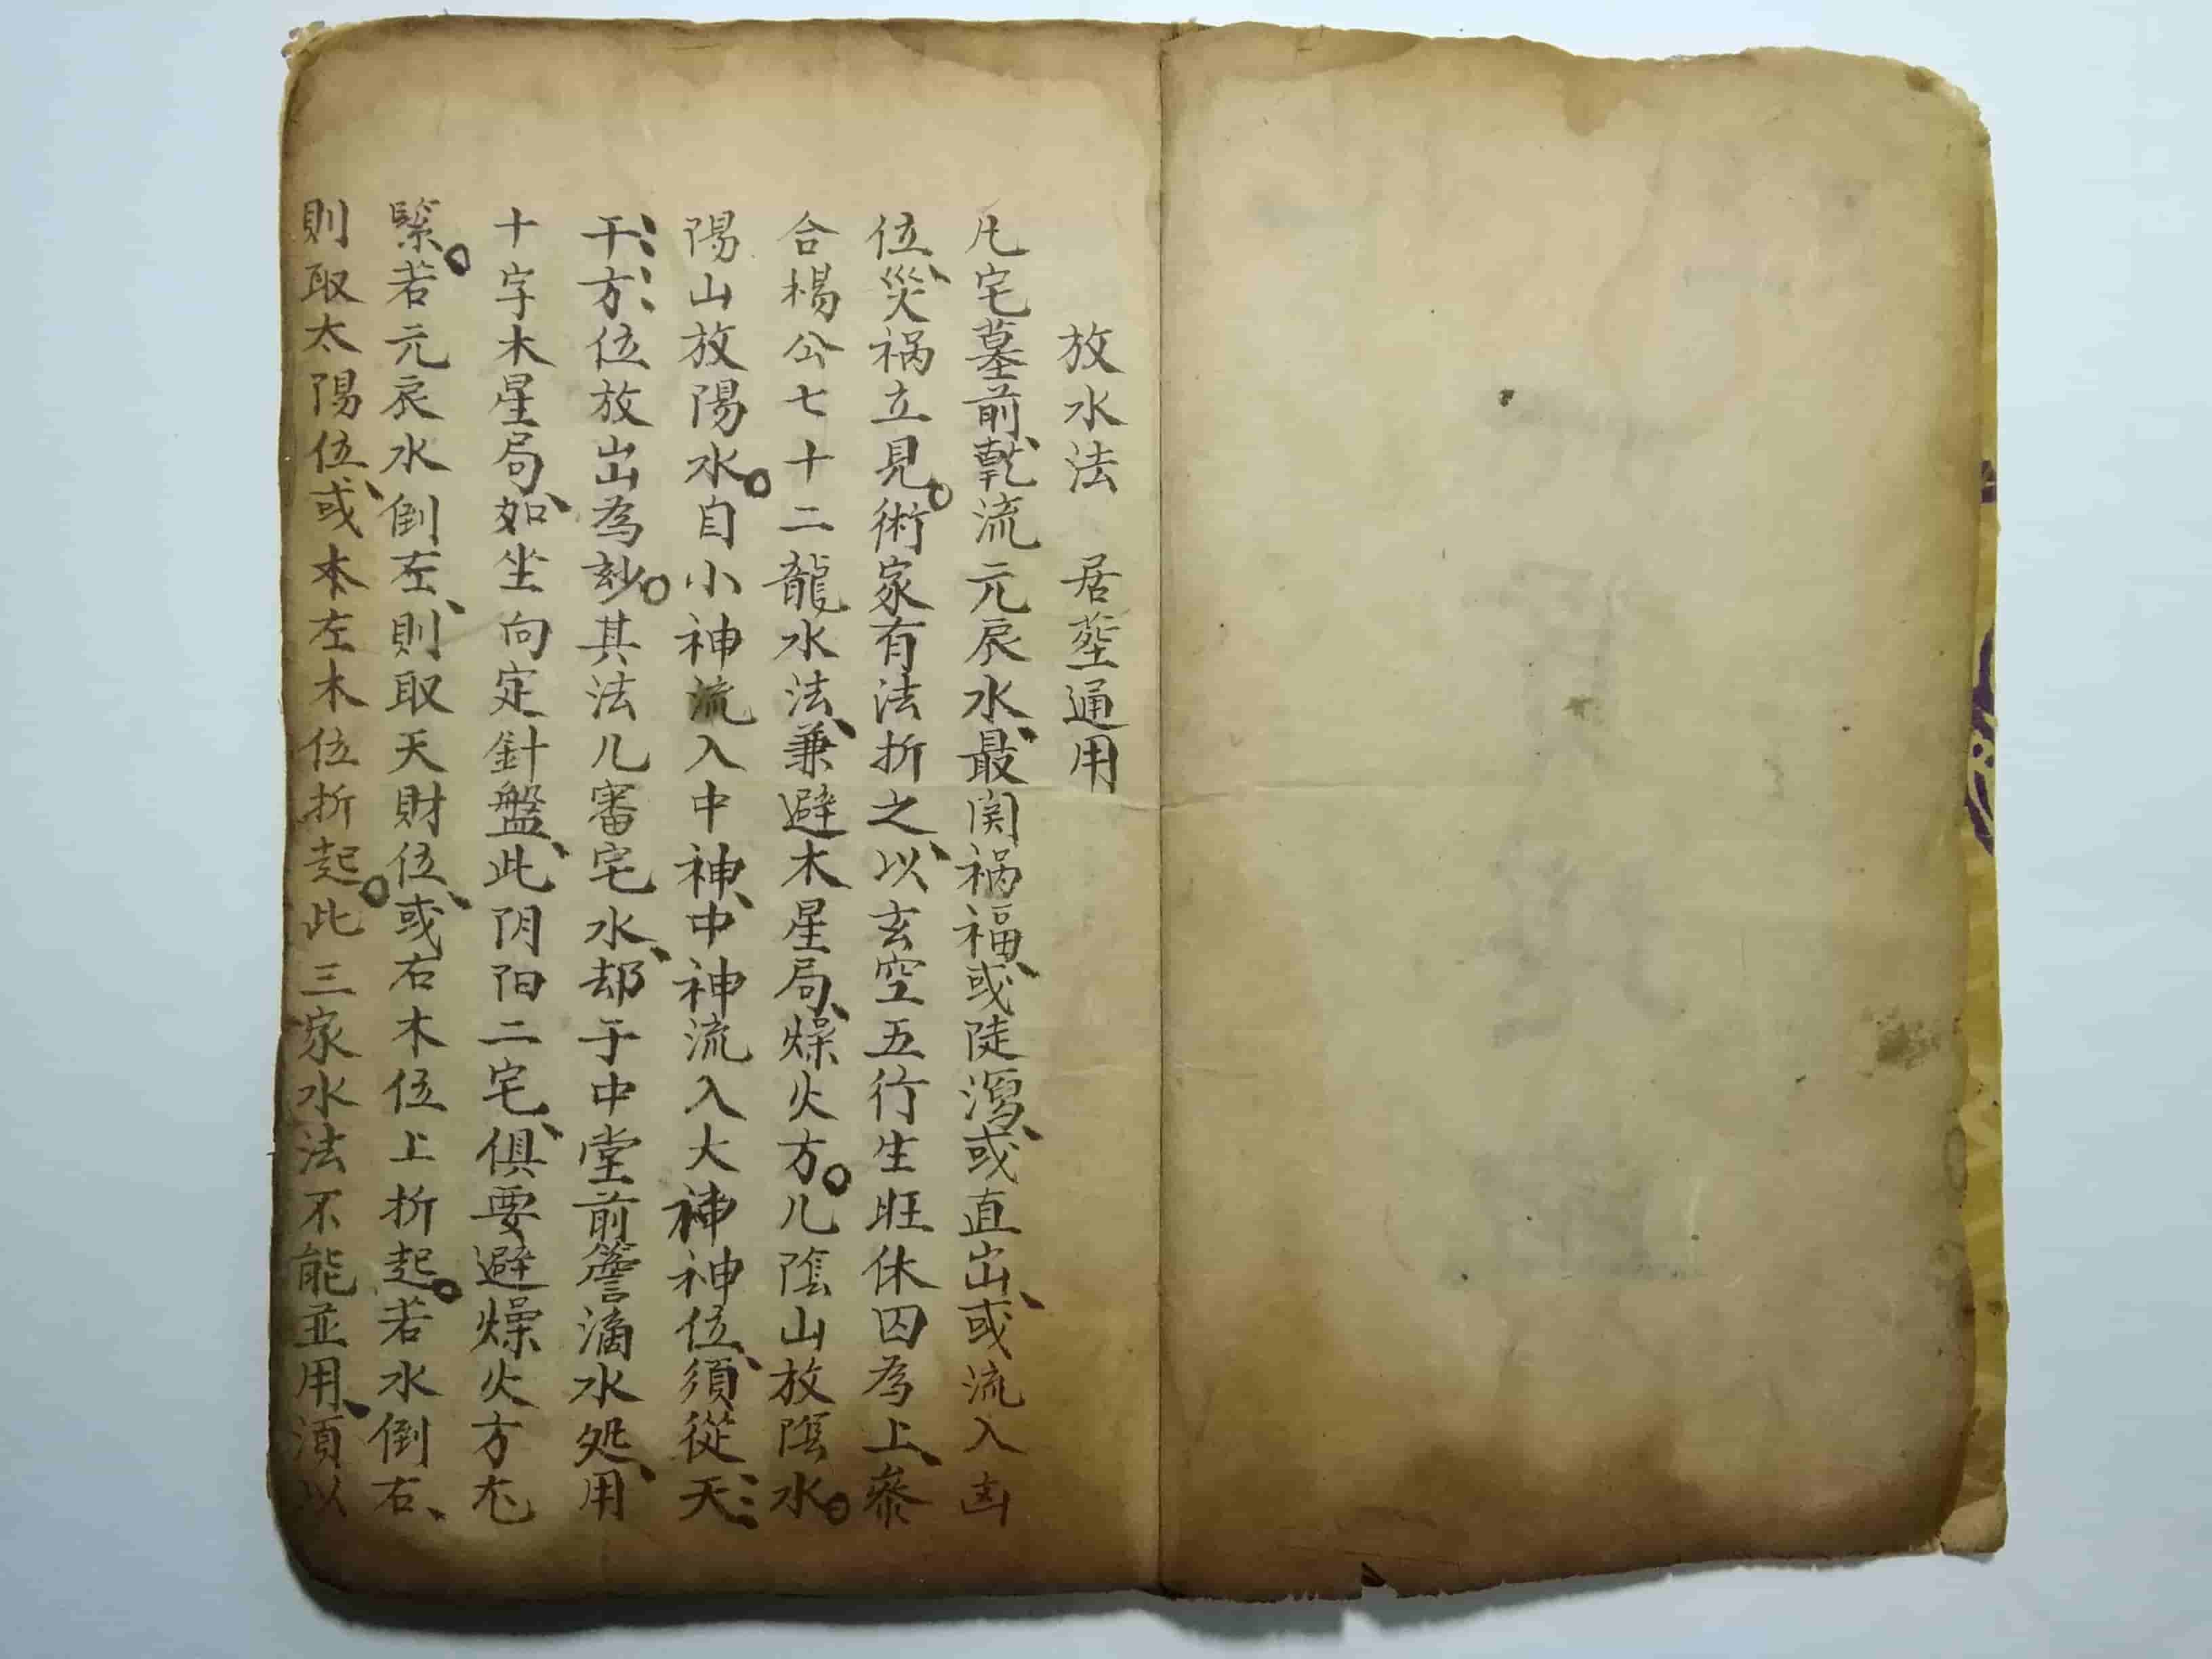 放水法 居塋通用
凢宅墓前、乾流元辰水、最関祸福、或陡瀉、或直出、或流入凶
位、災祸立見。術家有法折之、以玄空五行生旺休囚為上、叅
合楊公七十二龍水法、兼避木星局、燥火方。凢隂山放隂水。
陽山放陽水。自小神流入中神、中神流入大神神位、須從天
干方位放出為玅。其法凢審宅水、却于中堂前簷滴水処、用
十字木星局、如坐向定針盤、此阴阳二宅、俱要避燥火方尤
緊。若元辰水倒左、則取天財位、或右木位上折起。若水倒右、
則取太陽位、或本左木位折起。此三家水法不能並用、須以